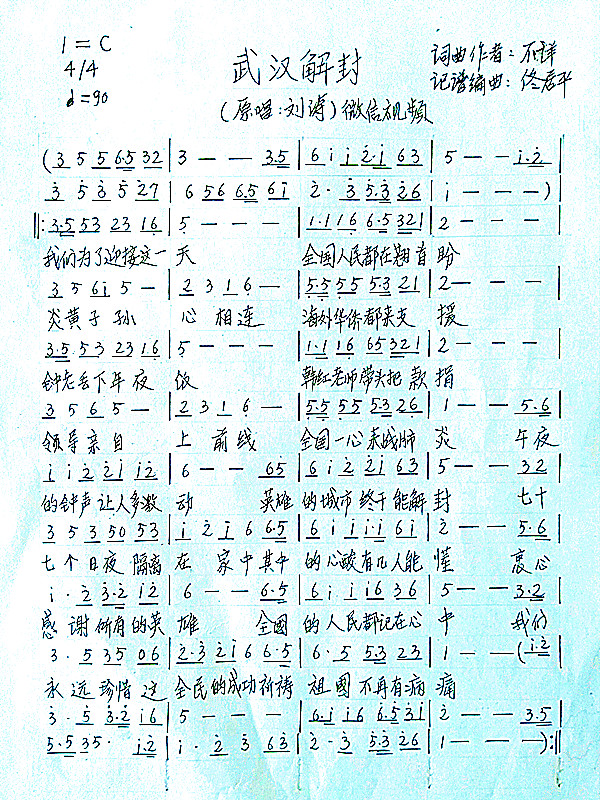 1=C
4/4
♩=90
武汉解封
词曲作者：不详
记谱编曲：佟居平
(原唱：刘涛)微信视频
(3 5 5 6·5 32 | 3 - - 3·5 | 6 i i 2·i 63 | 5 - - i·2 |
3 5 3 5 27 | 6 56 6·5 6i | 2· 3 5·3 26 | i - - - )
‖: 3·5 53 23 16 | 5 - - - | 1·1 16 6·5 321 | 2 - - - |
我们为了迎接这一天 全国人民都在翘首盼
3 5 6i 5 - | 2 3 1 6 - | 5·5 55 5·3 21 | 2 - - - |
炎黄子孙 心相连 海外华侨都来支援
3·5 53 23 1·6 | 5 - - - | 1·1 16 65 321 | 2 - - - |
钟老丢下年夜饭 韩红老师带头把款捐
3 5 6 5 - | 2 3 1 6 - | 5·5 55 5·3 26 | 1 - - 5·6 |
领导亲自 上前线 全国一心来战肺炎 午夜
i i 2 2i i2 | 6 - - 65 | 6 i 2 2i 63 | 5 - - 32 |
的钟声让人多激动 英雄的城市终于能解封 七十
3 5 3 50 53 | i 2 i 6 6·5 | 6 i i i·i 6i | 2 - - 5·6 |
七个日夜隔离在家中其中的心酸有几人能懂 衷心
i · 2 3·2 i2 | 6 - - 6·5 | 6 i i i6 36 | 5 - - 3·2 |
感谢所有的英雄 全国的人民都记在心中 我们
3 · 5 35 06 | 2·3 2i 6 6·5 | 6 · 5 5·3 23 | 1 - - (i·2 |
永远珍惜这全民的成功祈祷祖国不再有病痛
3 · 5 3·2 i6 | 5 - - - | 6·i i6 6·5 3i | 2 - - 3·5 |
5·5 35 · i·2 | i · 2 3 63 | 2 · 3 5·3 26 | 1 - - - ) :‖